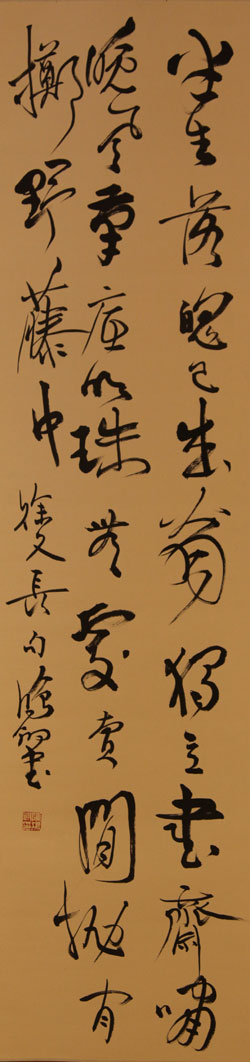 半生落魄已成翁獨立書齋嘯
晚風筆底明珠無處賣閒拋閒
擲野藤中 徐文長句 書